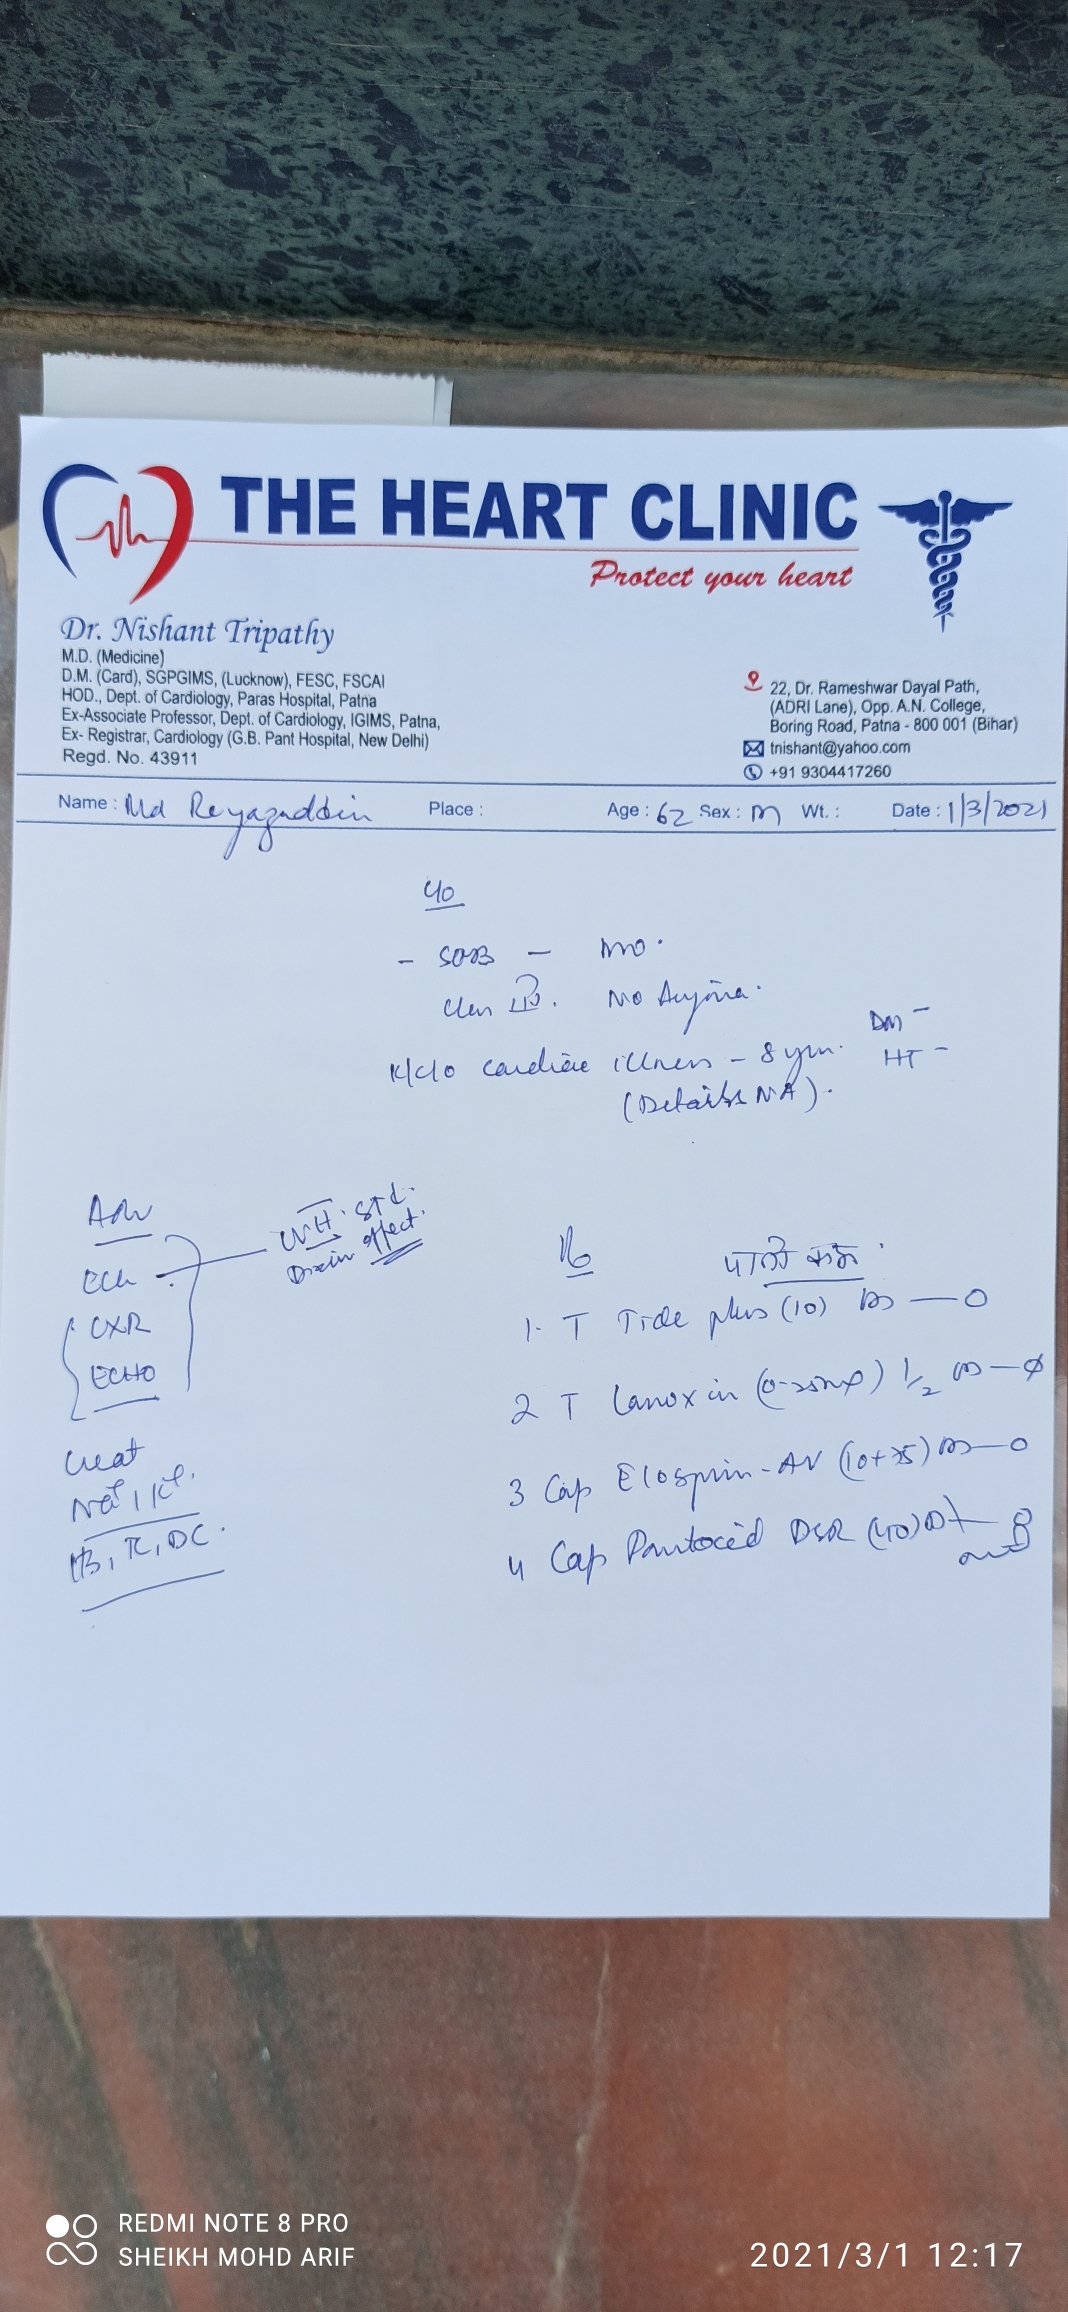 THE HEART CLINIC
Protect your heart
Dr. Nishant Tripathy
M.D. (Medicine)
D.M. (Card), SGPGIMS, (Lucknow), FESC, FSCAI
HOD., Dept. of Cardiology, Paras Hospital, Patna
Ex-Associate Professor, Dept. of Cardiology, IGIMS, Patna,
Ex- Registrar, Cardiology (G.B. Pant Hospital, New Delhi)
Regd. No. 43911
22, Dr. Rameshwar Dayal Path,
(ADRI Lane), Opp. A.N. College,
Boring Road, Patna - 800 001 (Bihar)
tnishant@yahoo.com
+91 9304417260
Name : Md Reyazuddin Place : Age : 62 Sex : M Wt. : Date : 1/3/2021
c/o
- SOB -
Class No Angina.
K/C/O cardiac illness - 8 yrs.
(Details NA).
DM -
HT -
Adv
ECG
CXR
ECHO
LVH. ST↓.
effect.
Creat
Na+ / K+.
Hb, TC, DC.
Rx
पानी कम
1. T Tide plus (10) — O
2 T Lanoxin 1/2
3 Cap Ecosprin-AV (10+75) — O
4 Cap Pantocid DSR (40)
REDMI NOTE 8 PRO
SHEIKH MOHD ARIF
2021/3/1 12:17